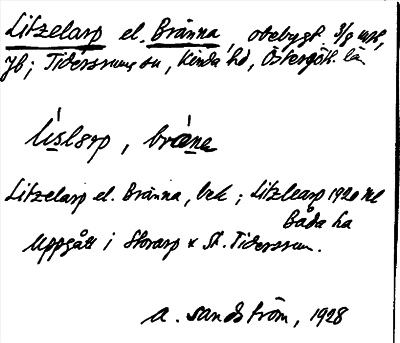 Litzelarp el. Bränna, obebygt. 3/8 mtl,
Jb; Tidersrums sn, Kinda hd, Östergötl. län
líslarp, bræ̀na
Litzelarp el. Bränna, bek; Litzlearp 1920 nl
Båda ha
uppgått i Storarp & St. Tidersrum.
A. Sandström, 1928